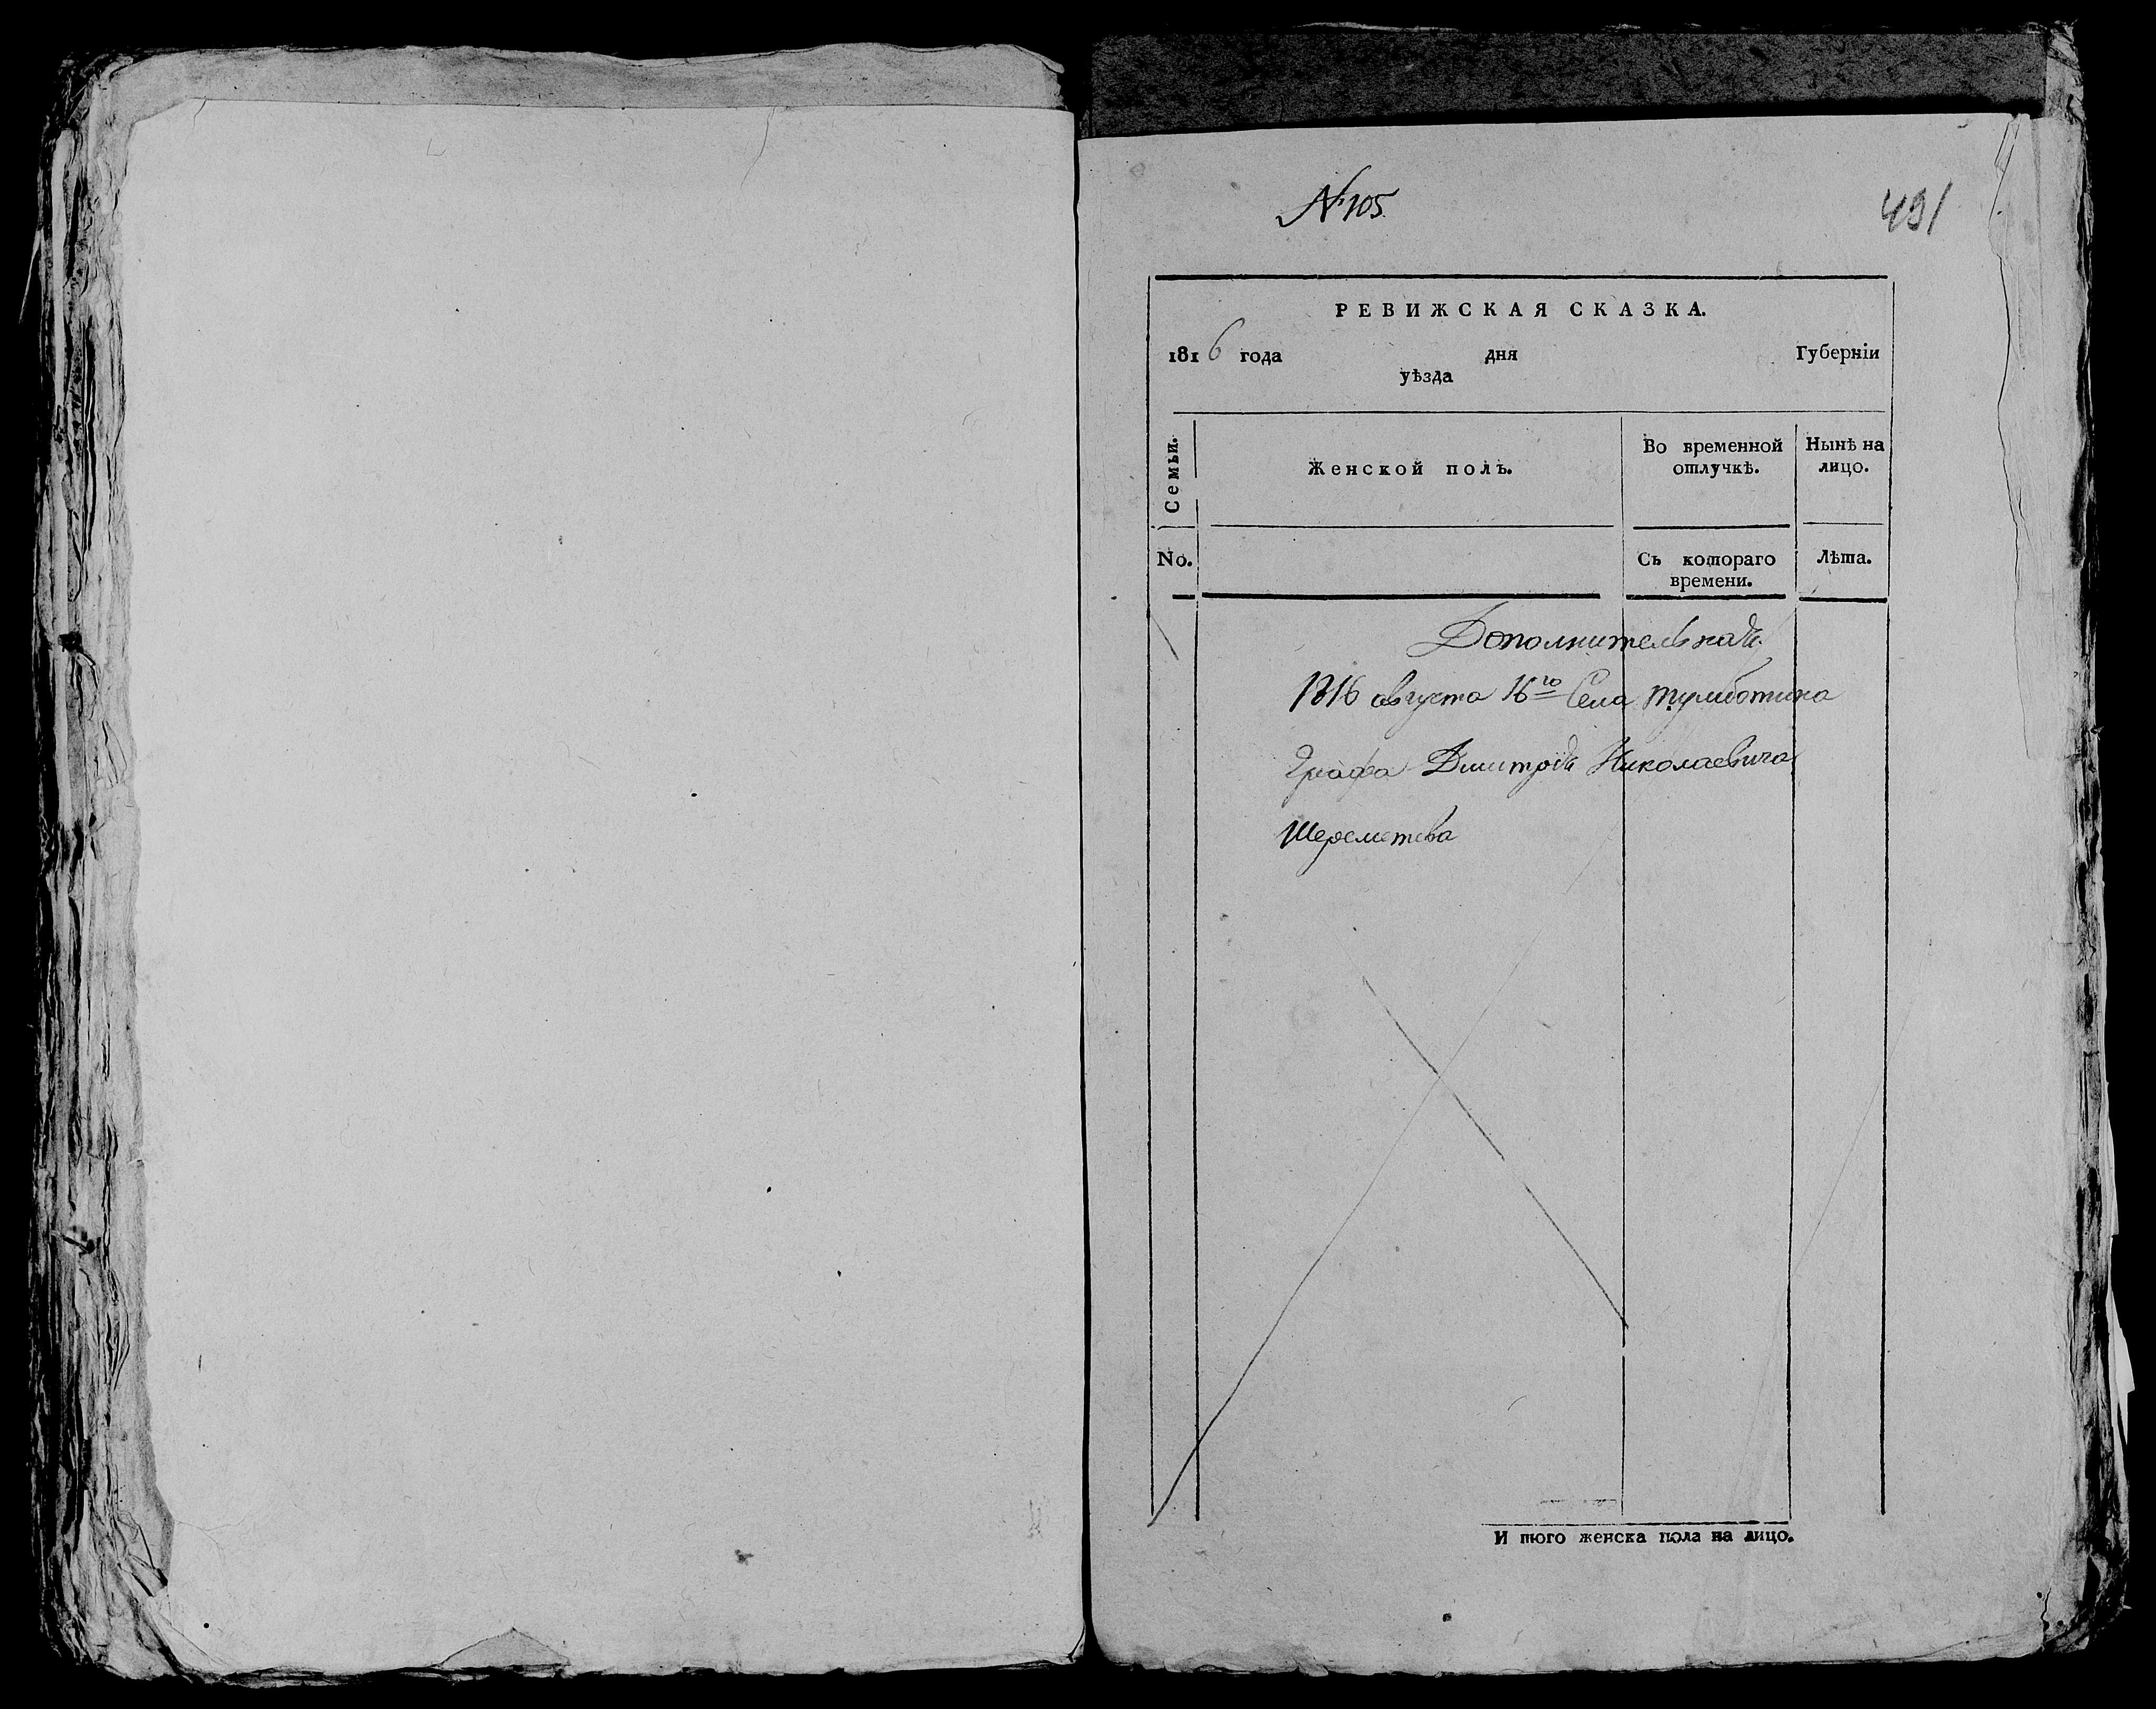 № 105
491
РЕВИЖСКАЯ СКАЗКА.
1816 года дня Губерніи
уѣзда
Семьи.
Женской полъ.
Во временной отлучкѣ.
Нынѣ на лицо.
No.
Съ котораго времени.
Лѣта.
Дополнительная
1816 августа 16го Села тумботина
Графа Дмитрія Николаевича
Шереметева
И того женска пола на лицо.